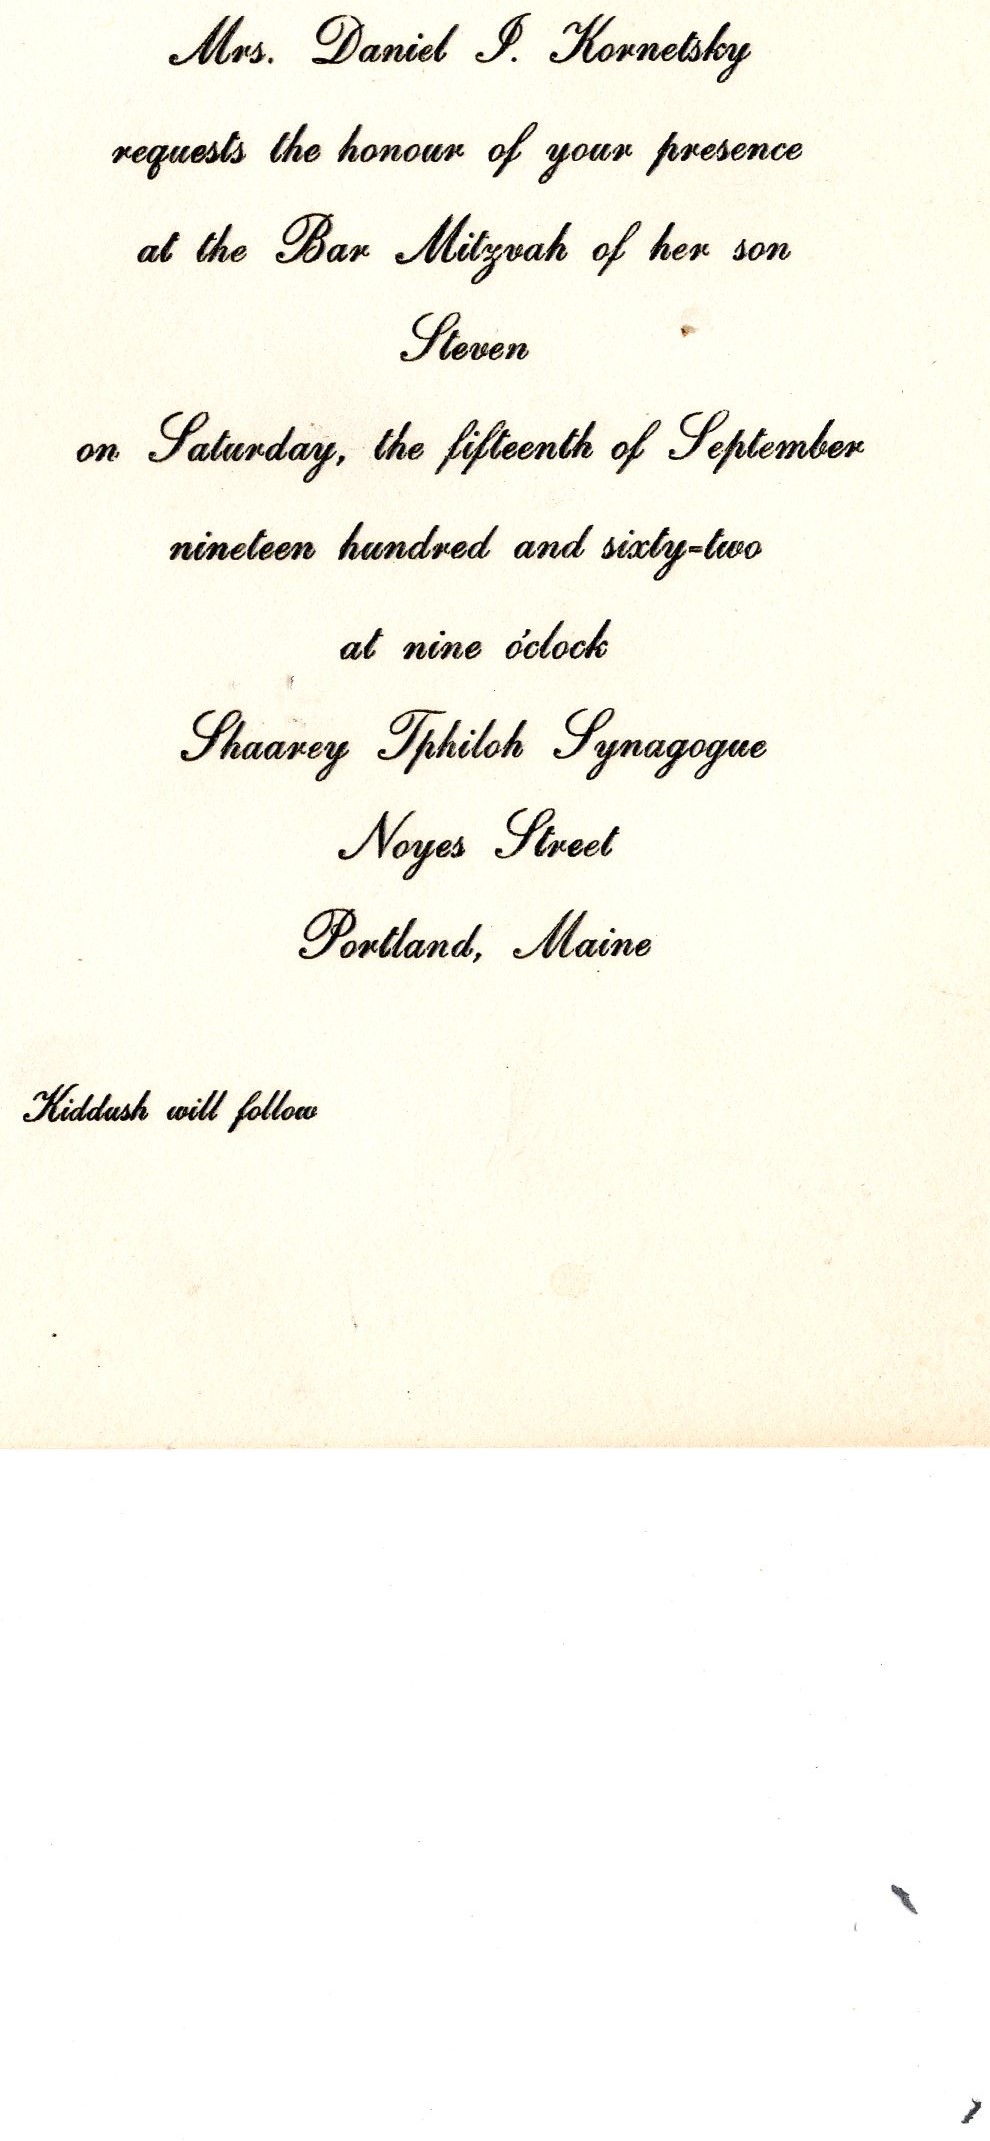 Mrs. Daniel I. Kornetsky
requests the honour of your presence
at the Bar Mitzvah of her son
Steven
on Saturday, the fifteenth of September
nineteen hundred and sixty=two
at nine o'clock
Shaarey Tphiloh Synagogue
Noyes Street
Portland, Maine
Kiddush will follow